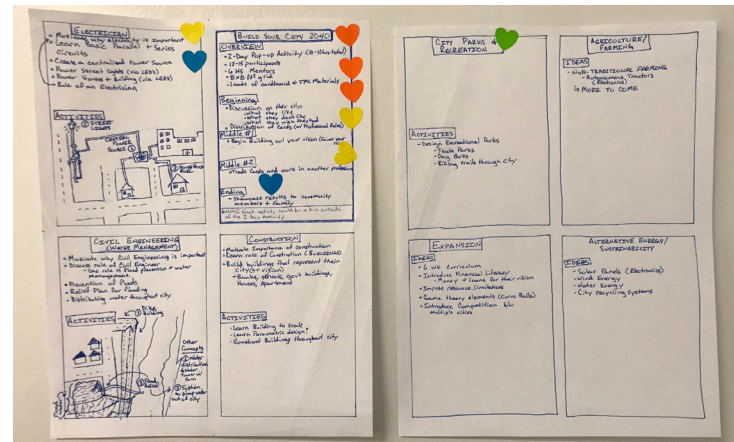 ELECTRICIAN
• Motivate why electricity is important
• Learn Basic Parallel + Series
Circuits
• Create a centralized Power Source
• Power Street Lights (via LEDs)
• Power Houses + Building (via LEDs)
• Role of an Electrician
ACTIVITIES
STREET
LIGHTS
CENTRAL
POWER
SOURCE ①
BUILD YOUR CITY 2040
OVERVIEW
• 2-Day Pop-up Activity
• 12-15 participants
• 6 HS Mentors
• 8x8 ft² grid
• Loads of cardboard + Materials
Beginning
• Discussion on their city
- What they like
- What they don't like
- What they wish they had
• Distribution of Cards (w/ Professional Roles)
Middle #1
• Begin Building our vision
Middle #2
• Trade Cards and work in another profession
Ending
• Showcase results to community
members + Family
Each activity could be a run outside
of the 2-Day Activity
CIVIL ENGINEERING
(WATER MANAGEMENT)
• Motivate why Civil Engineering is important
• Discuss role of Civil Engineer
• One role is Flood prevention + water
management
• Prevention of Floods
• Relief Plan for Flooding
• Distributing water throughout city
ACTIVITIES
① Dike
Building
② Flood
Relief
Other
Concepts
① Water
distribution
③ System
to pump water
out of city
CONSTRUCTION
• Motivate Importance of construction
• Learn role of Construction (BUILDINGS)
• Build buildings that represent their
city (or vision)
• Banks, schools, gov't buildings,
Houses, Apartment
ACTIVITIES
- Learn Building to scale
- Learn Parametric design
- Construct Buildings throughout city
CITY PARKS &
RECREATION
ACTIVITIES
- Design Recreational Parks
- Skate Parks
- Dog Parks
- Biking trails through city
AGRICULTURE/
FARMING
IDEAS
- Non-TRADITIONAL FARMING
- Autonomous Tractors
(Electronics)
↳ MORE TO COME
EXPANSION
IDEAS
• 6 wk curriculum
• Introduce Financial Literacy
• Money + Loans for their vision
• Impose resource limitations
• Game theory elements (Curve Balls)
• Introduce Competition b/w
multiple cities
ALTERNATIVE ENERGY/
SUSTAINABILITY
IDEAS
• Solar Panels (Electronics)
• Wind Energy
• Water Energy
• City recycling systems